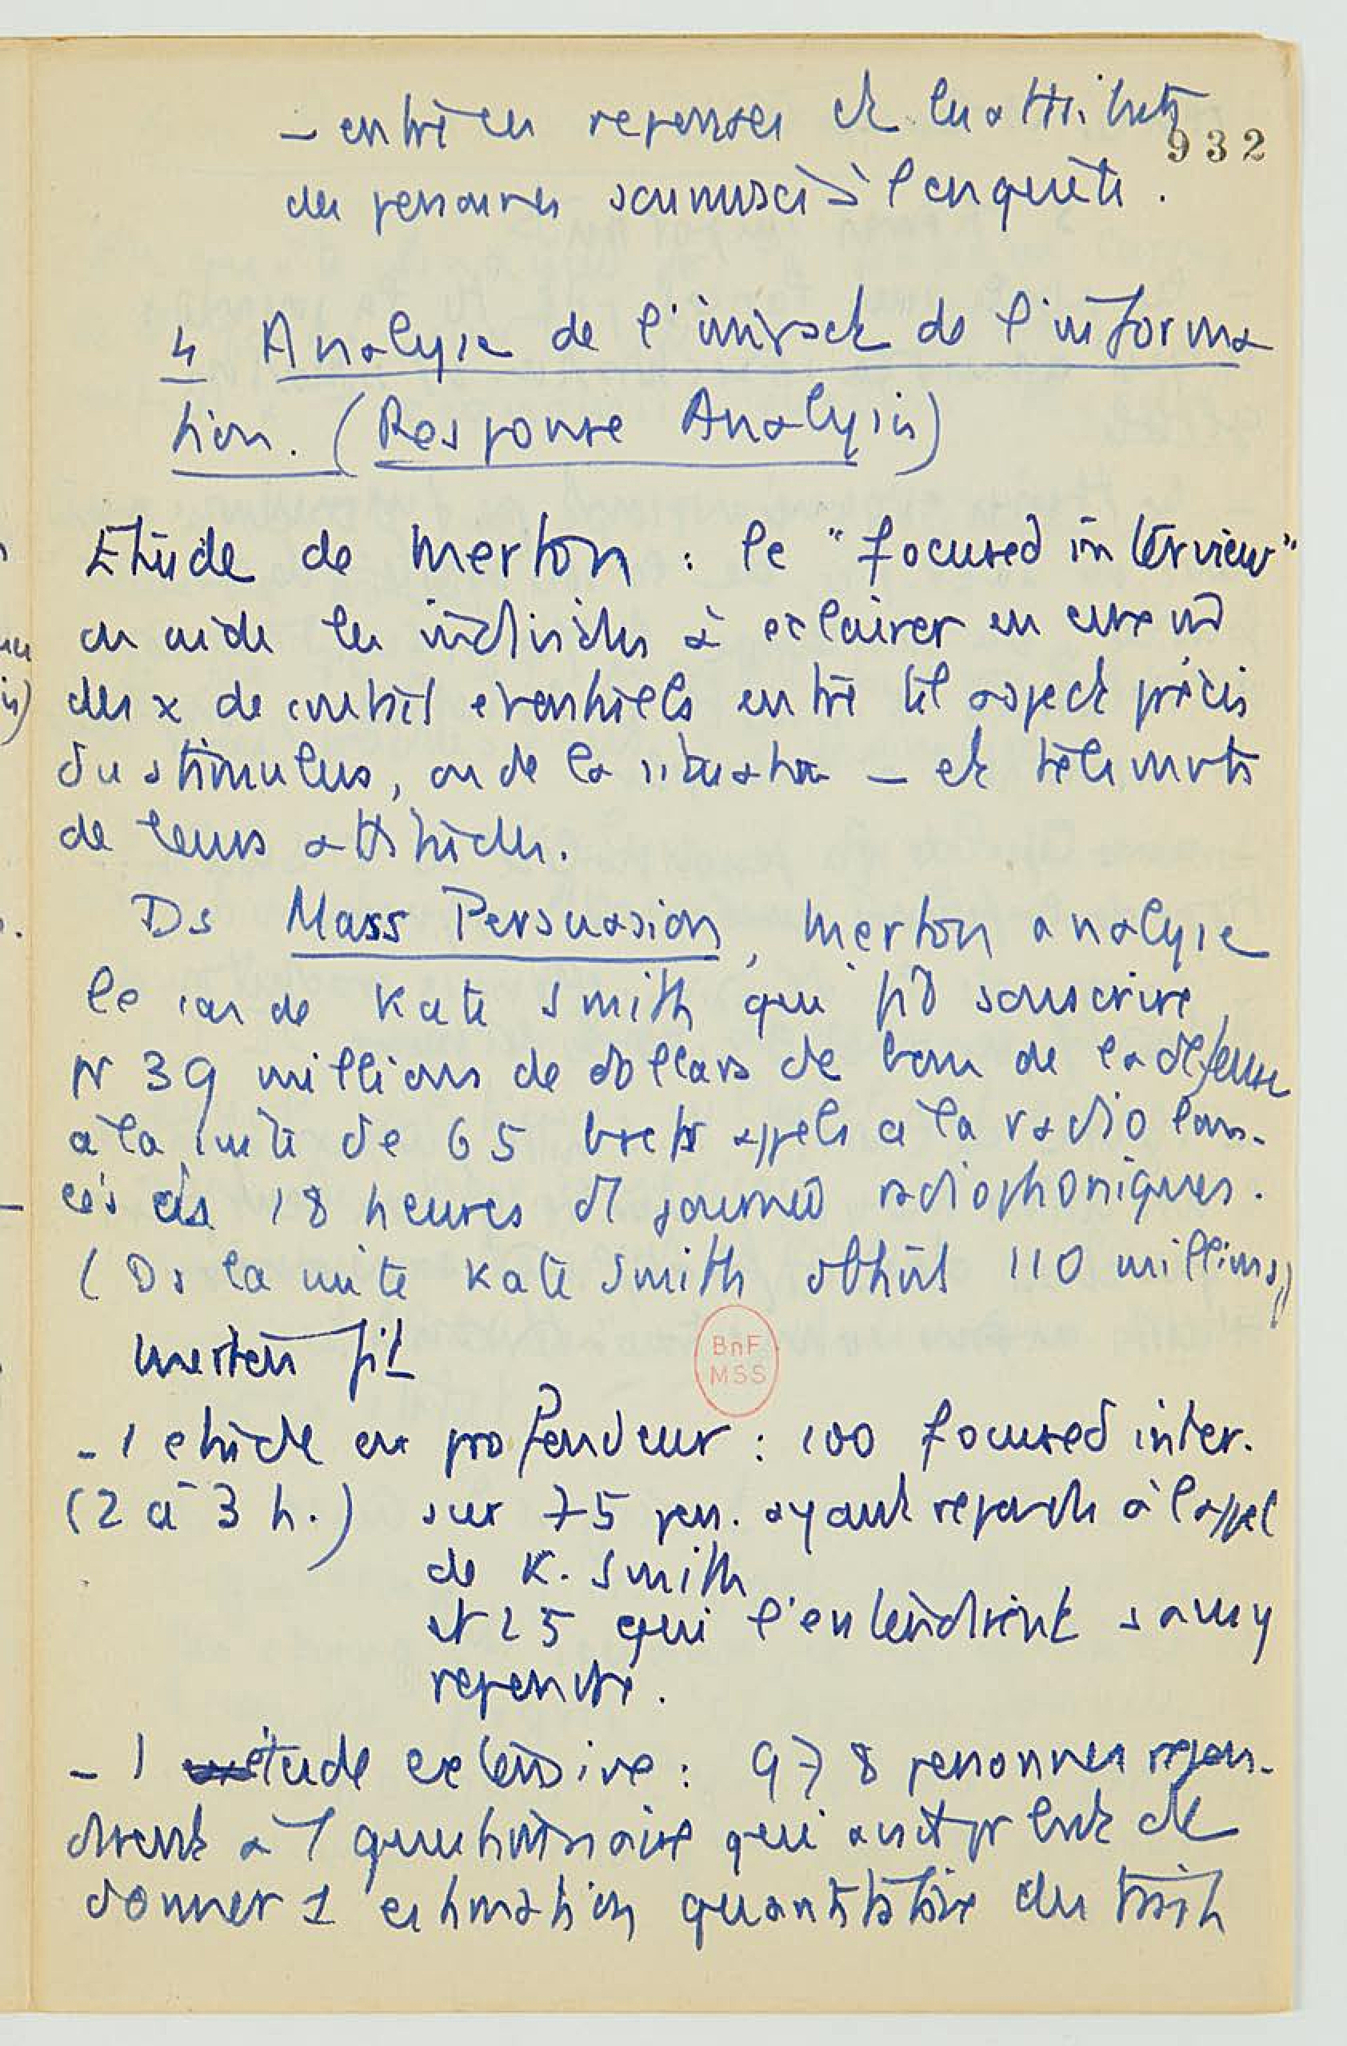 - entre les reponses et les attributs
932
des personnes soumises à l'enquête.
4 Analyse de l'impact de l'informa
tion. (Response Analysis)
Etude de Merton : le "focused interview"
on aide les individus à éclairer en
des x de eventuels entre tel aspect précis
du stimulus, ou de la situation - et tels mots
de leurs attitudes.
Ds Mass Persuasion, Merton analyse
le cas de Kate Smith qui fit souscrire
pr 39 millions de dollars de bons de la défense
à la suite de 65 brefs appels à la radio lan-
cés ds 18 heures de journée radiophoniques.
(Ds la suite Kate Smith obtint 110 millions)
Merton fit
BnF
MSS
- 1 etude en profondeur : 100 focused inter.
(2 à 3 h.) sur 75 pers. ayant repondu à l'appel
de K. Smith
et 25 qui l'entendirent sans y
repondre.
- 1 étude extensive : 978 personnes repon-
dirent à 1 questionnaire qui avait pr but de
donner 1 estimation quantitative des traits